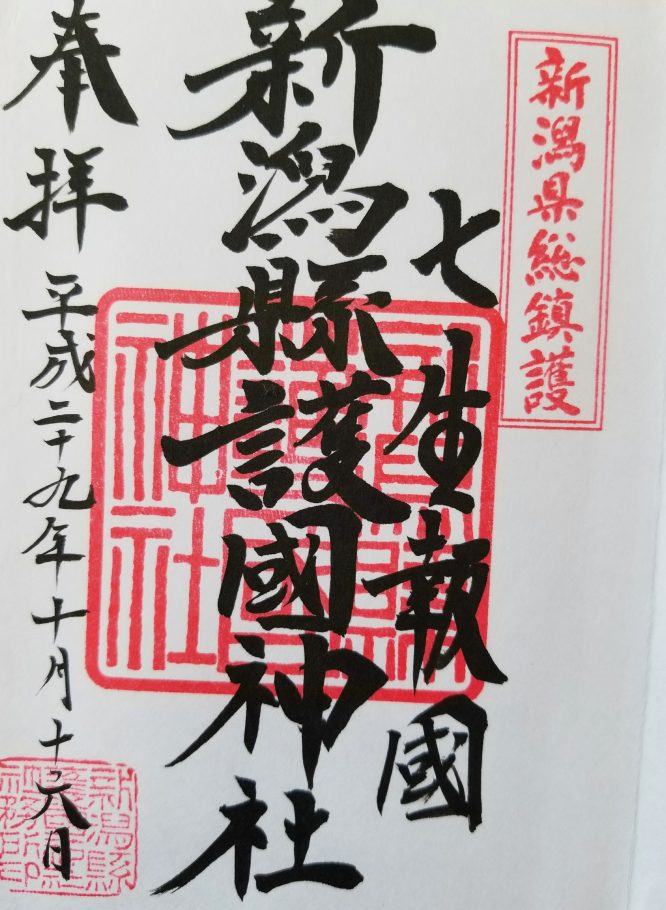 新潟県総鎮護
七生報國
新潟縣護國神社
奉拝
平成二十九年十月十六日